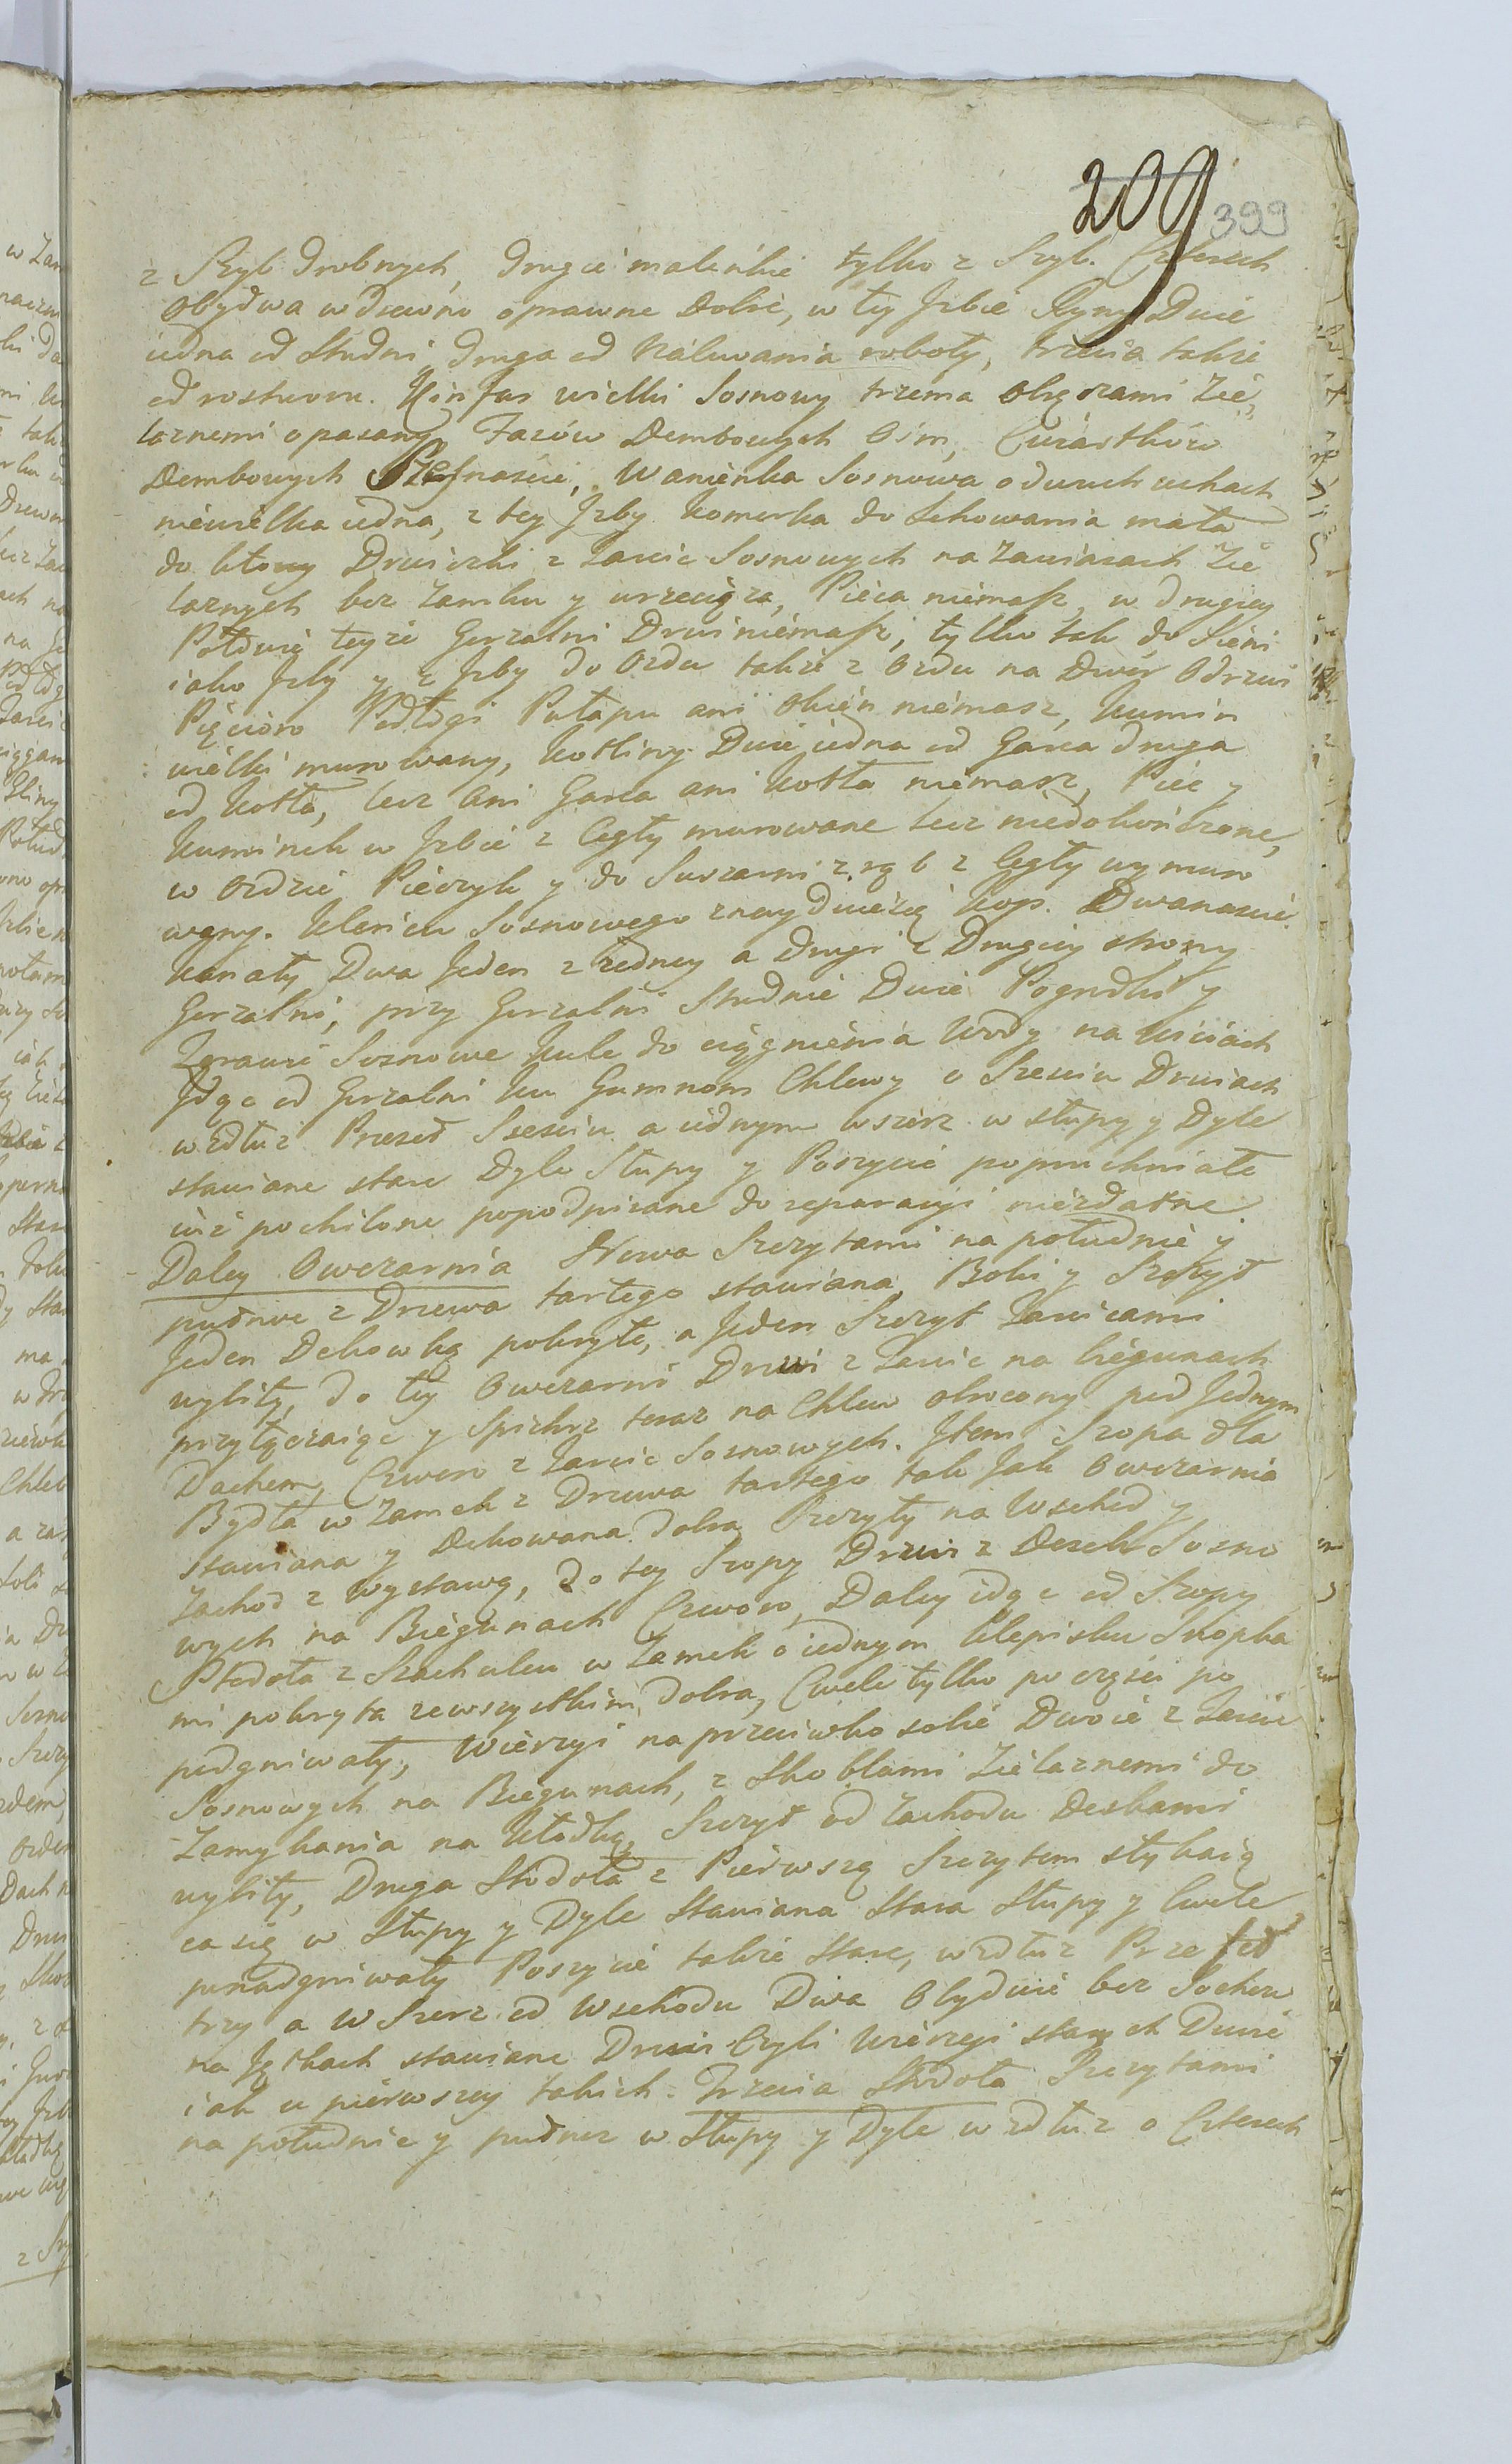 209 399
z Szyb drobnych, drugie maleńkie tylko z Szyb. Czterech
obydwa w drewno oprawne dobre, w tey Jzbie Ryny Dwie
iedna od Studni druga od nalewania roboty, trzecia także
od rostworu. Konfas wielki Sosnowy trzema obręczami Że
laznemi opasany, Fasów Dembowych Ośm, Cwiartków
Dembowych Szesnaście, Wanienka Sosnowa o dwuch uchach
niewielka iedna, z tey Jzby komorka do Schowania mała
do ktorey Drwiczki z Tarcic Sosnowych na Zawiasach Że
laznych bez Zamku y wrzeciąza, Pieca niemasz, w drugiey
Połowie teyże Gorzalni Drwi niemasz, tylko tak do Sieni
iako Jzby y z Jzby do Ozdu także z Ozdu na Dwór Odrzwi
Pięcioro Podłogi Pułapu ani Okien niemasz, Kumin
wielki murowany, Kotliny Dwie iedna od Garca druga
od kotła, lecz ani Garca ani kotła niemasz, Piec y
kuminek w Jzbie z Cegły murowane lecz niedokończone,
w Ozdzie Pieczyk y do Suszarni z rąb z Cegły wymuro
wany. Kleńcu Sosnowego znayduiesię kop. Dwanaście
kanały Dwa Jeden z iedney a drugi z Drugiey strony
Gorzalni, przy Gorzalni Studnie Dwie Pogrodki y
Zorawie Sosnowe kule do ciągnienia Wody na kiściach
Jdąc od Gorzalni ku Gumnom Chlewy o Sześciu Drwiach
wzdłuż Przeseł Sześciu a iednym wszerz w słupy y Dyle
stawiane stare Dyle Słupy y Poszycie popruchniałe
iuż pochilone popodpierane do reparacyi niezdatne
Daley Owczarnia Nowa Szczytami na południe y
pułnoc z Drzewa tartego stawiana, Boki y Szczyt
Jeden Dekowką pokryte, a Jeden Szczyt Tarcicami
wybity, do tey Owczarni Drwi z Tarcic na biegunach
przyłączaiąc y Spichrz teraz na Chlew obrocony pod Jednym
Dachem, Czworo z Tarcic Sosnowych. Jtem Szopa dla
Bydła w Zamek z Drzewa tartego tak Jak Owczarnia
stawiana y Dekowana dobra Szczyty na Wschod y
Zachod z wystawą, do tey Szopy Drwi z Desek Sosno
wych na Biegunach Czworo, Daley idąc od Szopy
Stodoła z Szachulcu w Zamek o iednym klepisku Snopka
mi pokryta zewszystkim dobra, Cwele tylko po częsci po
podgniwały, Wierzyi naprzeciwko sobie Dwoie z Tarcic
Sosnowych na Biegunach, z Skoblami Żelaznemi do
Zamykania na kłodkę, Szczyt od Zachodu Deskami
wybity, Druga Stodoła z Pierwszą Szczytem stykaią
ca się w Słupy y Dyle Stawiana Stara Słupy y Cwele
ponadgniwały Poszycie także stare, wzdłuż Przeseł
trzy a w Szerz od Wschodu Dwa Obydwie bez Sochow
na Jętkach stawiane Drwi Czyli Wierzyi starych Dwoie
iak u pierwszey takich. Trzecia Stodoła Szczytami
na południe y pułnoc w Słupy y Dyle wzdłuż o Czterech